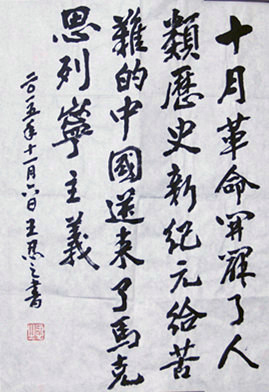 十月革命開辟了人
類歷史新紀元給苦
難的中國送來了馬克
思列寧主義
二〇一五年十一月六日王思之書